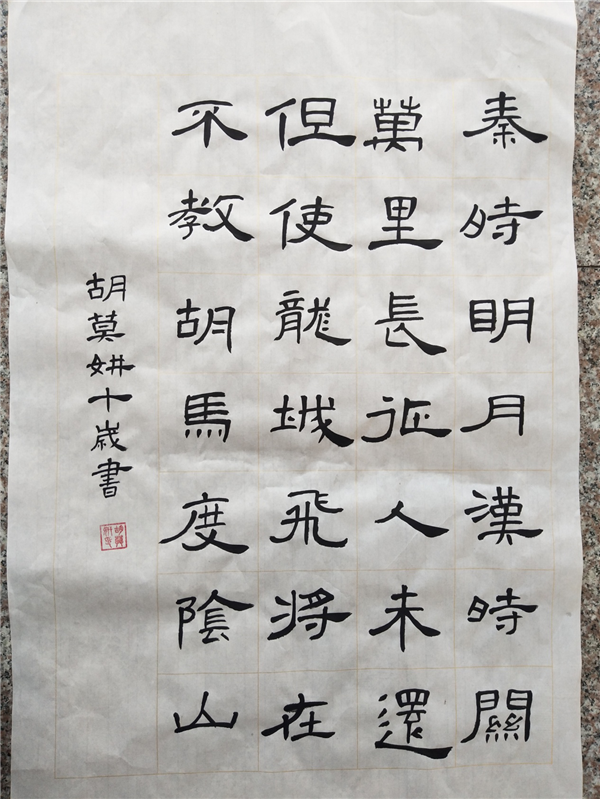 秦時明月漢時關
萬里長征人未還
但使龍城飛將在
不教胡馬度陰山
胡莫妌十歲書